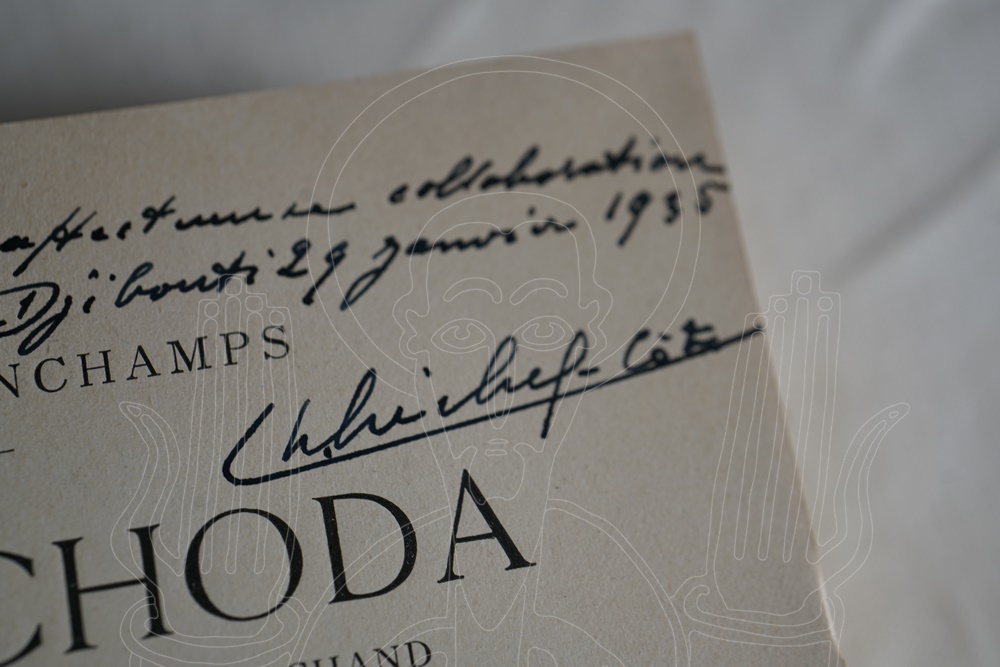 affectueuse collaboration
Djibouti 29 janvier 1935
NCHAMPS
CHODA
CHAND